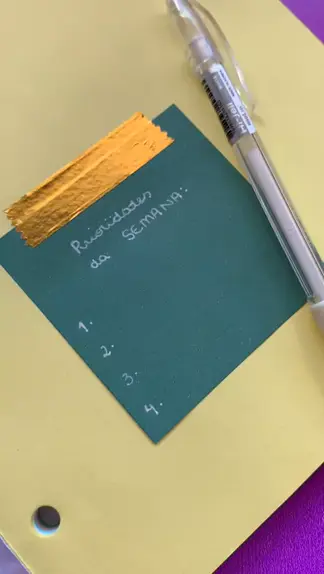 Prioridades
da SEMANA:
1.
2.
3.
4.